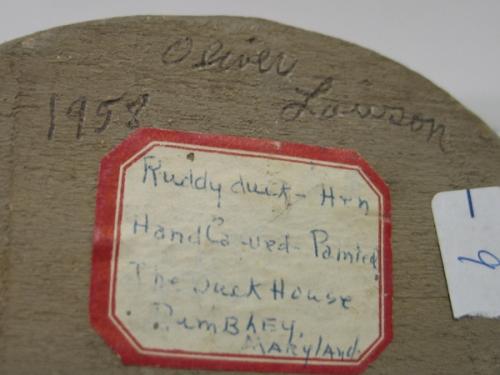 Oliver
Lawson
1958
Ruddy duck - Hen
Hand Carved - Painted
The Duck House
RUMBLEY,
MARYLAND.
9 -